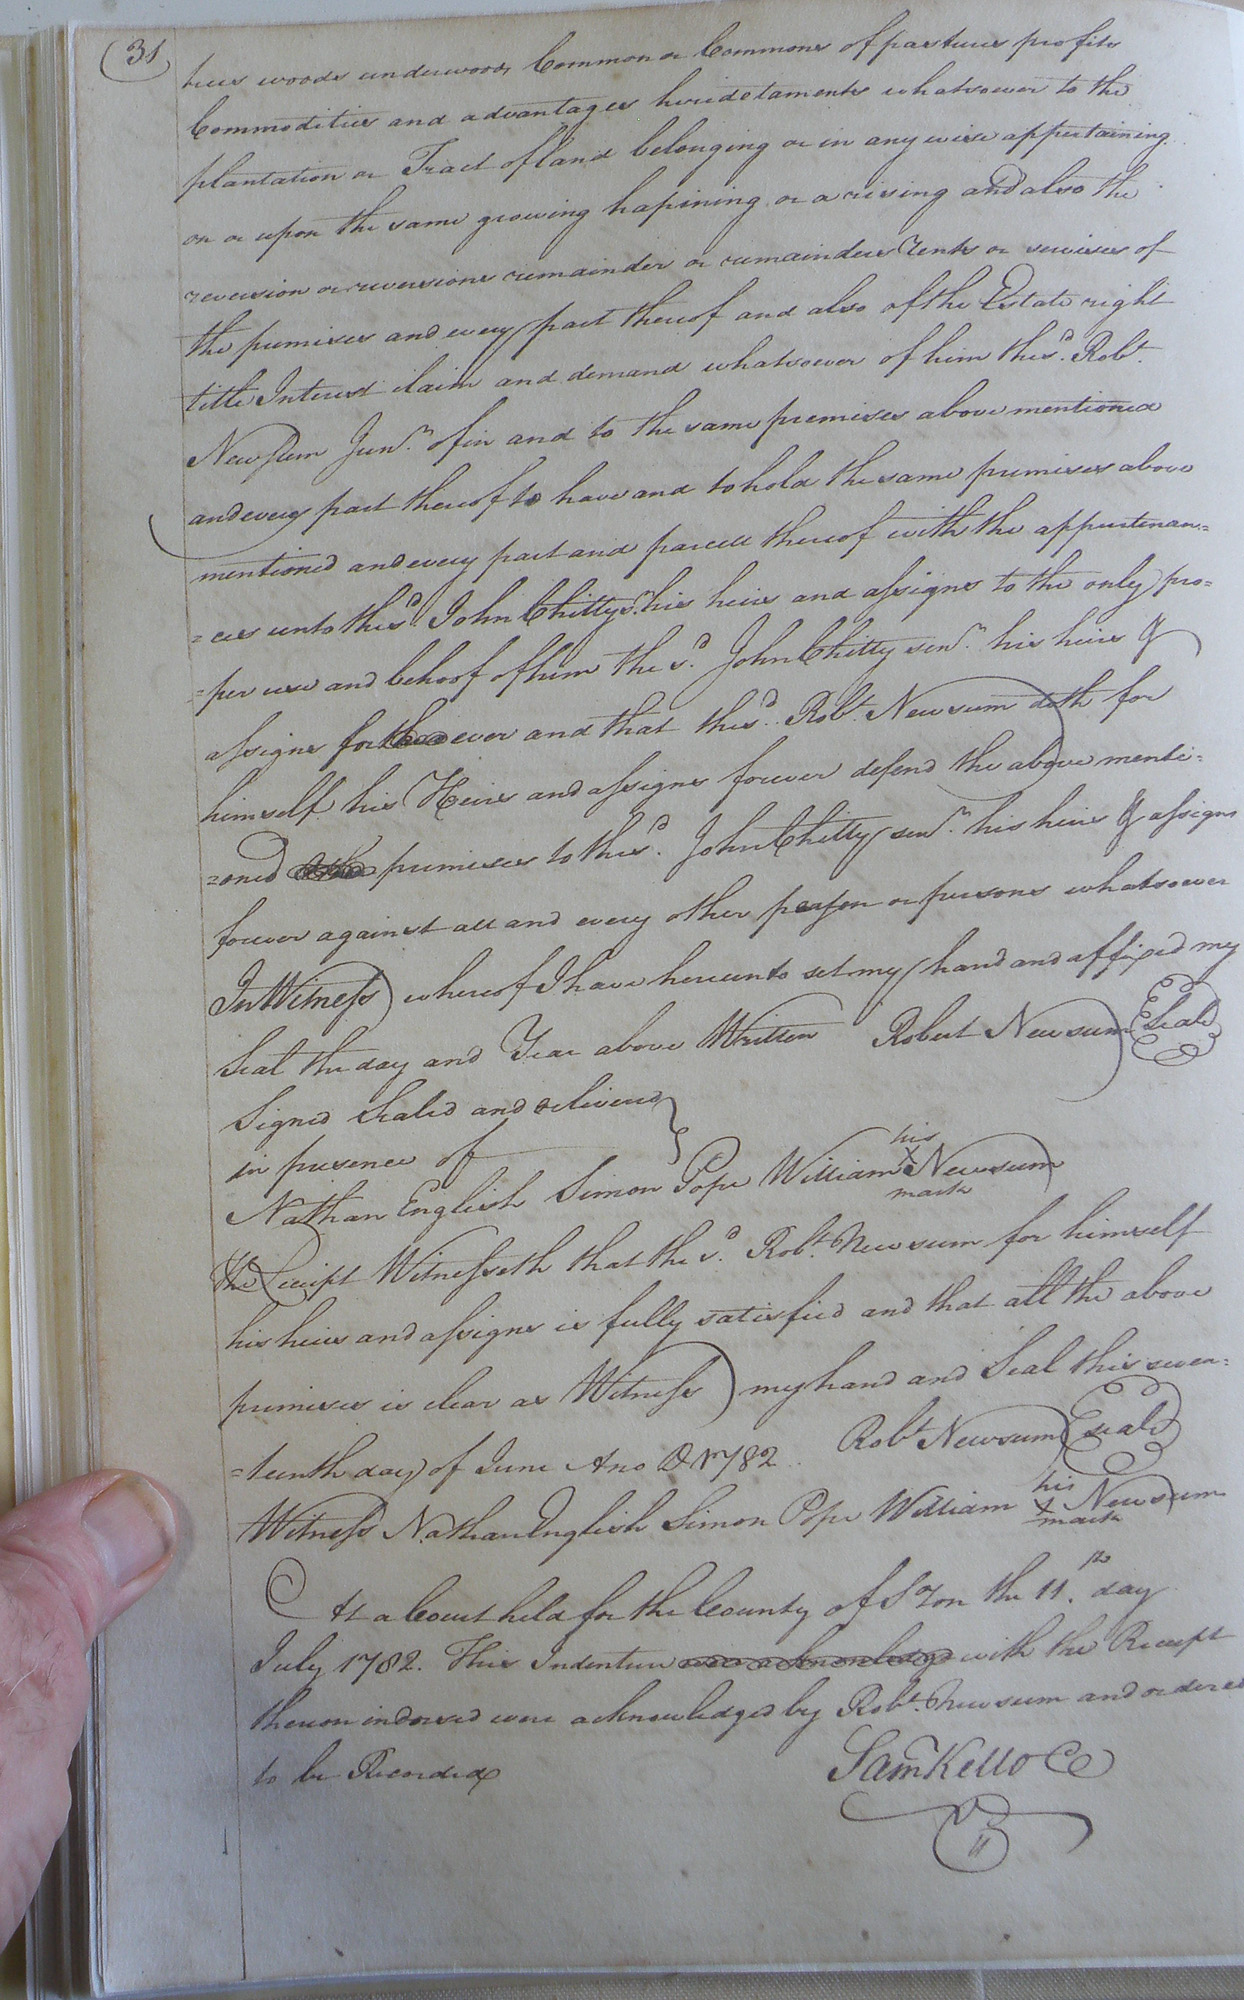 31
trees woods underwoods Common or Commons of pastures profits
Commodities and advantages heridetaments whatsoever to the
plantation or Tract of land belonging or in any wise appertaining
on or upon the same growing hapining or arising and also the
reversion or reversions remainder or remainders Rents or servises of
the premises and every part thereof and also of the Estate right
title Interest claim and demand whatsoever of him the sd. Robt.
Newsum Junr. of in and to the same premises above mentioned
and every part thereof to have and to hold the same premises above
mentioned and every part and parcell thereof with the appurtenan=
=ces unto the sd. John Chitty sr. his heirs and assigns to the only pro=
=per use and behoof of him the sd. John Chitty senr. his heirs &
assigns for ever and that the sd. Robt. Newsum doth for
himself his Heirs and assigns forever defend the above menti=
=oned premises to the sd. John Chitty senr. his heirs & assigns
forever against all and every other person or persons whatsoever
In Witness whereof I have hereunto set my hand and affixed my
Seal the day and Year above Written Robert Newsum (Seal)
Signed Sealed and delivered }
in presence of
Nathan English Simon Pope William his X mark Newsum
The Receipt Witnesseth that the sd. Robt. Newsum for himself
his heirs and assigns is fully satisfied and that all the above
premises is clear as Witness my hand and Seal this seven=
=teenth day of June Ano D 1782. Robt Newsum (Seal)
Witness Nathan English Simon Pope William his X mark Newsum
At a Court held for the County of on the 11th. day
July 1782. This Indenture was acknowledged with the Receipt
thereon indorsed were acknowledged by Robt. Newsum and ordered
to be Recorded
Saml Kello CC